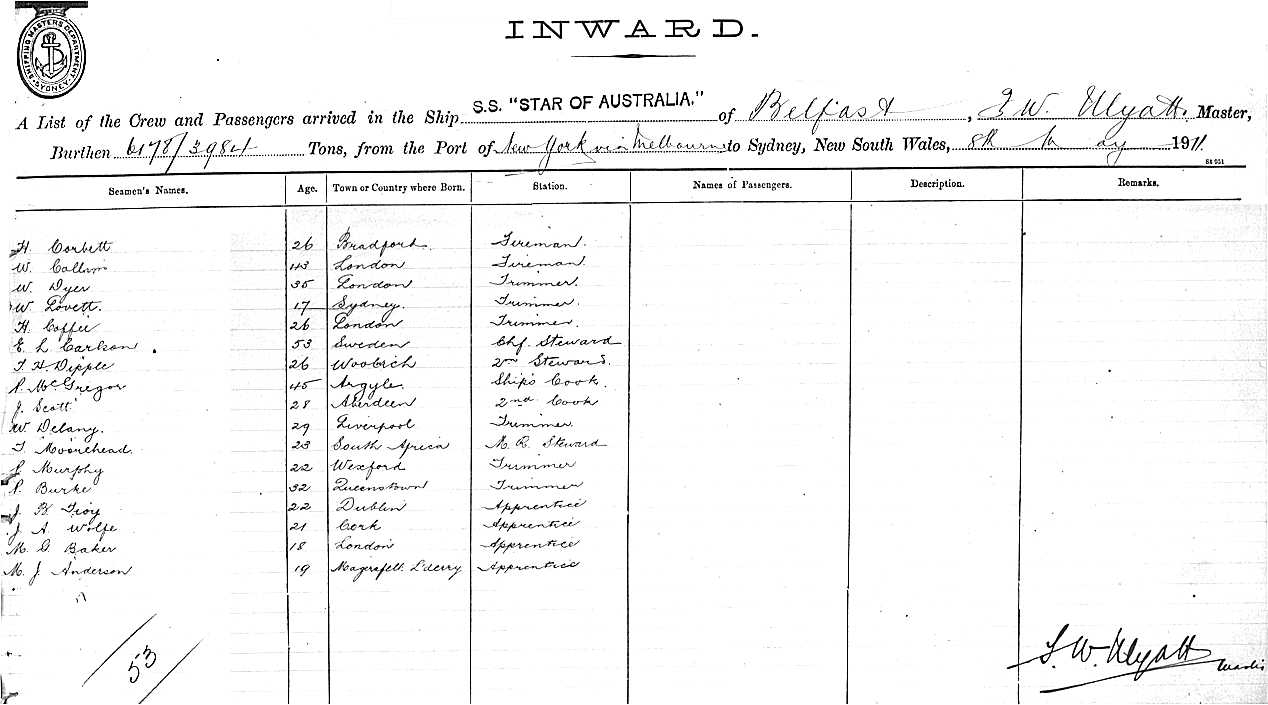 SHIPPING MASTERS DEPARTMENT SYDNEY
INWARD.
A List of the Crew and Passengers arrived in the Ship S.S. "STAR OF AUSTRALIA," of Belfast, W. Wyatt, Master,
Burthen 6178/3984 Tons, from the Port of New York via Melbourne to Sydney, New South Wales, 8th May 1911.
Seamen's Names. Age. Town or Country where Born. Station. Names of Passengers. Description. Remarks.
H. Corbett 26 Bradford. Fireman.
W. 43 London Fireman.
W. Dyer 35 London Trimmer.
W. Lovett. 17 Sydney. Trimmer.
H. 26 London Trimmer.
E. L. Carlson 53 Sweden Chf. Steward
T. H. Dipple 26 Woolwich 2nd Steward.
P. McGregor 45 Argyle. Ships Cook.
J. Scott 28 Aberdeen 2nd Cook
W. Delany. 29 Liverpool Trimmer
T. Moorehead. 23 South Africa M. R. Steward
P. Murphy 22 Wexford Trimmer
P. Burke 32 Queenstown Trimmer
J. Troy 22 Dublin Apprentice
J. A. Wolfe 21 Cork Apprentice
M. G. Baker 18 London Apprentice
M. J. Anderson 19 Magerafelt. L'derry Apprentice
53
W. Wyatt Master